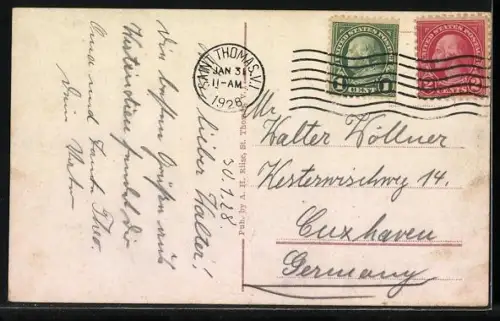 SAINT THOMAS, V.I.
JAN 31
11-AM.
1928
UNITED STATES POSTAGE
1 CENT 1
UNITED STATES POSTAGE
2 CENTS 2
30.1.28.
lieber Walter!
Die besten Grüße aus
sendet Dir
Oma und Tante Theo.
Dein
Pub. by A. H. Riise, St. Thomas, V.I.
Mr.
Walter Wöllner
Westerwischweg 14.
Cuxhaven
Germany